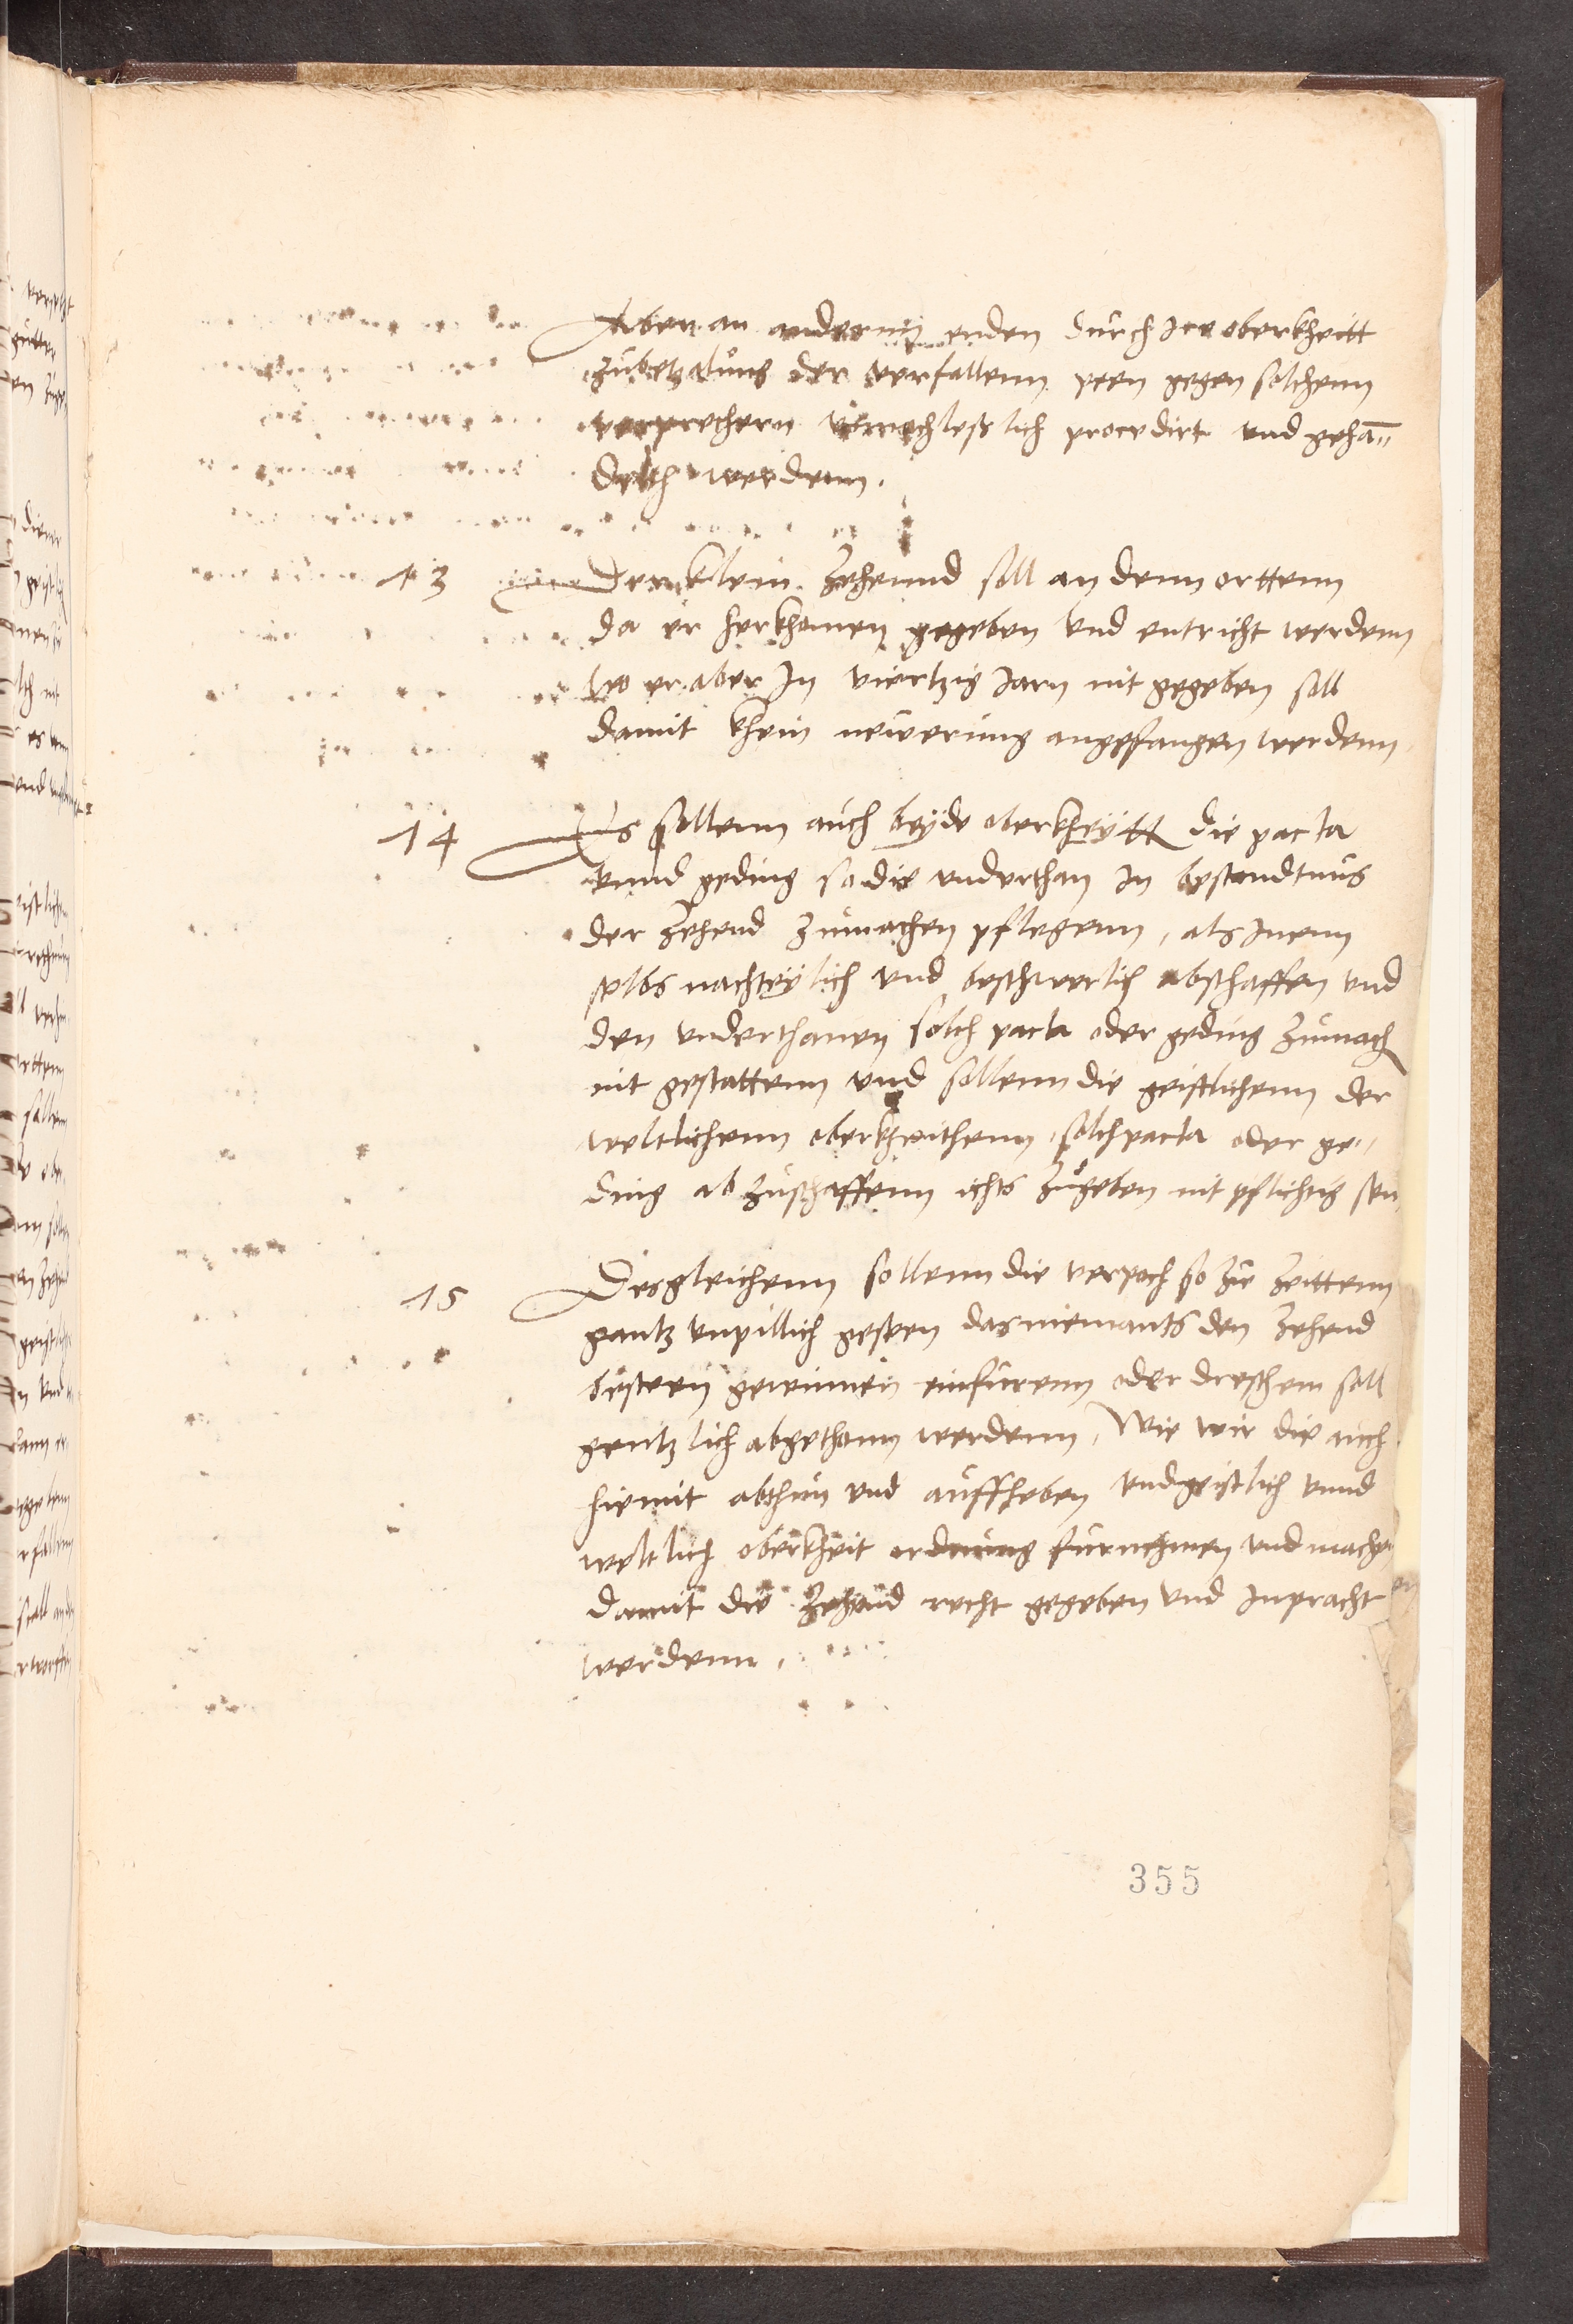 Aber an andernn enden durch Ire oberkheitt
zubetzalung der verfallenn peen gegen solchenn
verprechern unnachleslich procedirt und gehan=
delth werdenn.
13 Der klein Zehennd soll an denn orttenn
da er herkhomen gegeben und entricht werdenn
wo er aber In viertzig Jarn nit gegeben soll
damit khein newerung angefangen werdenn
14 Es sollenn auch beyde oberkheytt die pacta
unnd geding so die underthan In bestandtnus
der Zehend zumachen pflegenn, als Inenn
selbs nachteylich und beschwerlich abschaffen und
den underthanen solch pacta oder geding zumach
nit gestattenn und sollenn die geistlichenn der
weltlichenn oberkheithenn solch pacta oder ge-
ding abzuschaffenn ichts zugeben nit pflichtig sein
15 Desgleichenn sollenn die verpoch so zu Zeittenn
gantz unpillich geseen das niemants den Zehend
besteen gewinnen einfurenn oder dreschenn soll
gentzlich abgethann werdenn, Wie wir die auch
hiemit abthun und auffheben und geistlich unnd
weltlich oberkheit ordnung furnehmen und machen
damit die Zehend recht gegeben und Inpracht
werdenn.
355